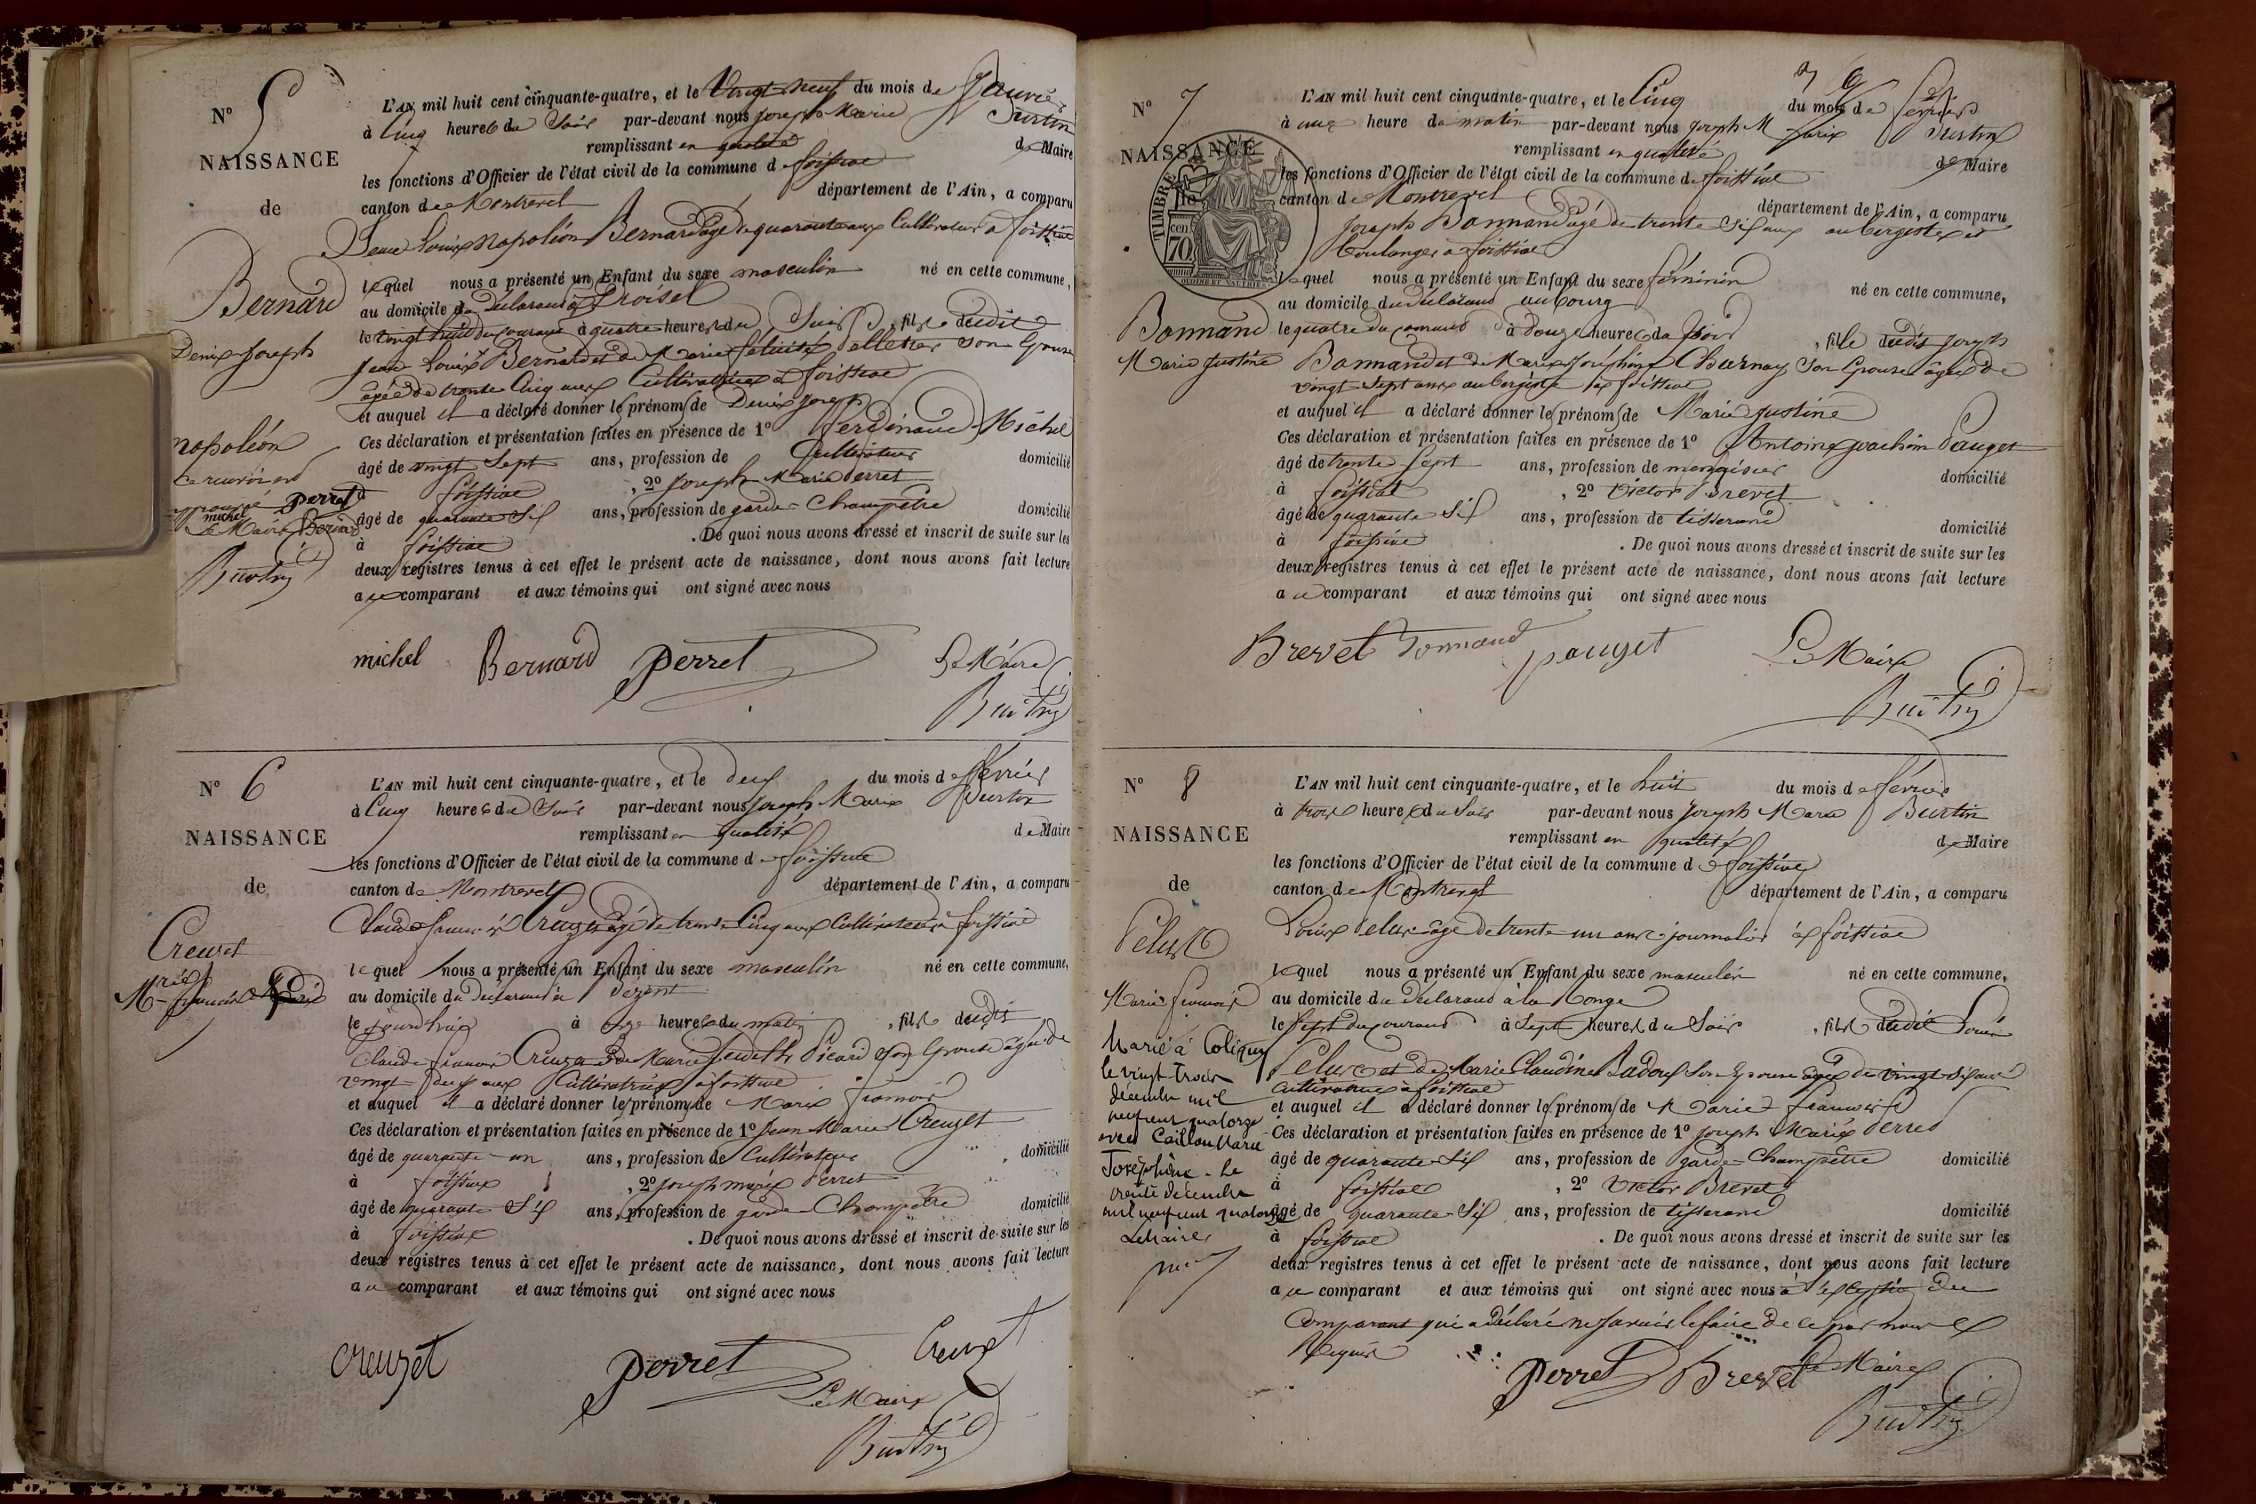 N° 5
NAISSANCE
de
Bernard
Denis Joseph
napoléon
approuvé Perret
michel
Le Maire Bernard
Burtin
L'AN mil huit cent cinquante-quatre, et le Vingt neuf du mois de Janvier
à Cinq heures du Soir par-devant nous Joseph Marie Burtin
remplissant en qualité de Maire
les fonctions d'Officier de l'état civil de la commune de foissiat
canton de Montrevel département de l'Ain, a comparu
Jean Louis Napoléon Bernard âgé de quarante ans Cultivateur à foissiat
lequel nous a présenté un Enfant du sexe masculin né en cette commune,
au domicile du déclarant
le vingt huit du courant à quatre heures du Soir, fils dudit
Jean Louis Bernard et de Marie félicité Pelletier Son Epouse
agée de trente Cinq ans Cultivatrice à foissiat
et auquel il a déclaré donner les prénoms de Denis Joseph
Ces déclaration et présentation faites en présence de 1° Ferdinand Michel
âgé de vingt Sept ans, profession de Cultivateur domicilié
foissiat, 2° Joseph Marie Perret
âgé de quarante Six ans, profession de garde Champêtre domicilié
à foissiat. De quoi nous avons dressé et inscrit de suite sur les
deux registres tenus à cet effet le présent acte de naissance, dont nous avons fait lecture
au comparant et aux témoins qui ont signé avec nous
michel Bernard Perret Le Maire
Burtin
N° 6
NAISSANCE
de
Creuzet
Marie françois
L'AN mil huit cent cinquante-quatre, et le deux du mois de février
à Cinq heures du Soir par-devant nous Joseph Marie Burtin
remplissant en qualité de Maire
les fonctions d'Officier de l'état civil de la commune de foissiat
canton de Montrevel département de l'Ain, a comparu
Claude françois Creuzet âgé de trente Cinq ans Cultivateur à foissiat
lequel nous a présenté un Enfant du sexe masculin né en cette commune,
au domicile du déclarant à
le jourdhui à onze heures du matin, fils dudit
Claude françois Creuzet et de Marie Picard Son Epouse âgée de
vingt deux ans Cultivatrice à foissiat
et auquel il a déclaré donner les prénoms de Marie françois
Ces déclaration et présentation faites en présence de 1° Jean Marie Creuzet
âgé de quarante un ans, profession de Cultivateur, domicilié
à foissiat, 2° Joseph marie Perret
âgé de quarante Six ans, profession de garde Champêtre domicilié
à foissiat. De quoi nous avons dressé et inscrit de suite sur les
deux registres tenus à cet effet le présent acte de naissance, dont nous avons fait lecture
au comparant et aux témoins qui ont signé avec nous
Creuzet Perret Creuzet
Le Maire
Burtin
N° 7
NAISSANCE
TIMBRE
cen
70
Bonnand
Marie Justine
L'AN mil huit cent cinquante-quatre, et le Cinq du mois de février
à une heure du matin par-devant nous Joseph Marie Burtin
remplissant en qualité de Maire
les fonctions d'Officier de l'état civil de la commune de foissiat
canton de Montrevel département de l'Ain, a comparu
Joseph Bonnand âgé de trente Six ans aubergiste et
boulanger à foissiat
lequel nous a présenté un Enfant du sexe féminin né en cette commune,
au domicile du déclarant au bourg
le quatre du courant à douze heures du Soir, fille dudit Joseph
Bonnand et de Marie Josephine Charnay Son Epouse âgée de
vingt Sept ans aubergiste à foissiat
et auquel il a déclaré donner les prénoms de Marie Justine
Ces déclaration et présentation faites en présence de 1° Antoine Joachim Pauget
âgé de trente Sept ans, profession de domicilié
à foissiat, 2° Victor Brevet
âgé de quarante Six ans, profession de tisserand domicilié
à foissiat. De quoi nous avons dressé et inscrit de suite sur les
deux registres tenus à cet effet le présent acte de naissance, dont nous avons fait lecture
au comparant et aux témoins qui ont signé avec nous
Brevet Bonnand pauget Le Maire
Burtin
N° 8
NAISSANCE
de
Pelus
Marie françois
Marié à Coligny
le vingt trois
décembre mil
neuf cent quatorze
avec Caillon Marie
Joséphine. Le
trente décembre
mil neuf cent quatorze
Le Maire
L'AN mil huit cent cinquante-quatre, et le huit du mois de février
à trois heures du Soir par-devant nous Joseph Marie Burtin
remplissant en qualité de Maire
les fonctions d'Officier de l'état civil de la commune de foissiat
canton de Montrevel département de l'Ain, a comparu
Louis Pelus âgé de trente un ans journalier à foissiat
lequel nous a présenté un Enfant du sexe masculin né en cette commune,
au domicile du déclarant à la
le Sept du courant à Sept heures du Soir, fils dudit Louis
Pelus et de Marie Claudine Badoux Son Epouse âgée de vingt Six ans
Cultivatrice à foissiat
et auquel il a déclaré donner les prénoms de Marie françois
Ces déclaration et présentation faites en présence de 1° Joseph Marie Perret
âgé de quarante Six ans, profession de garde Champêtre domicilié
à foissiat, 2° Victor Brevet
âgé de quarante Six ans, profession de tisserand domicilié
à foissiat. De quoi nous avons dressé et inscrit de suite sur les
deux registres tenus à cet effet le présent acte de naissance, dont nous avons fait lecture
au comparant et aux témoins qui ont signé avec nous à l'exception du
Comparant qui a déclaré ne savoir le faire de ce par nous
Requis
Perret Brevet Le Maire
Burtin